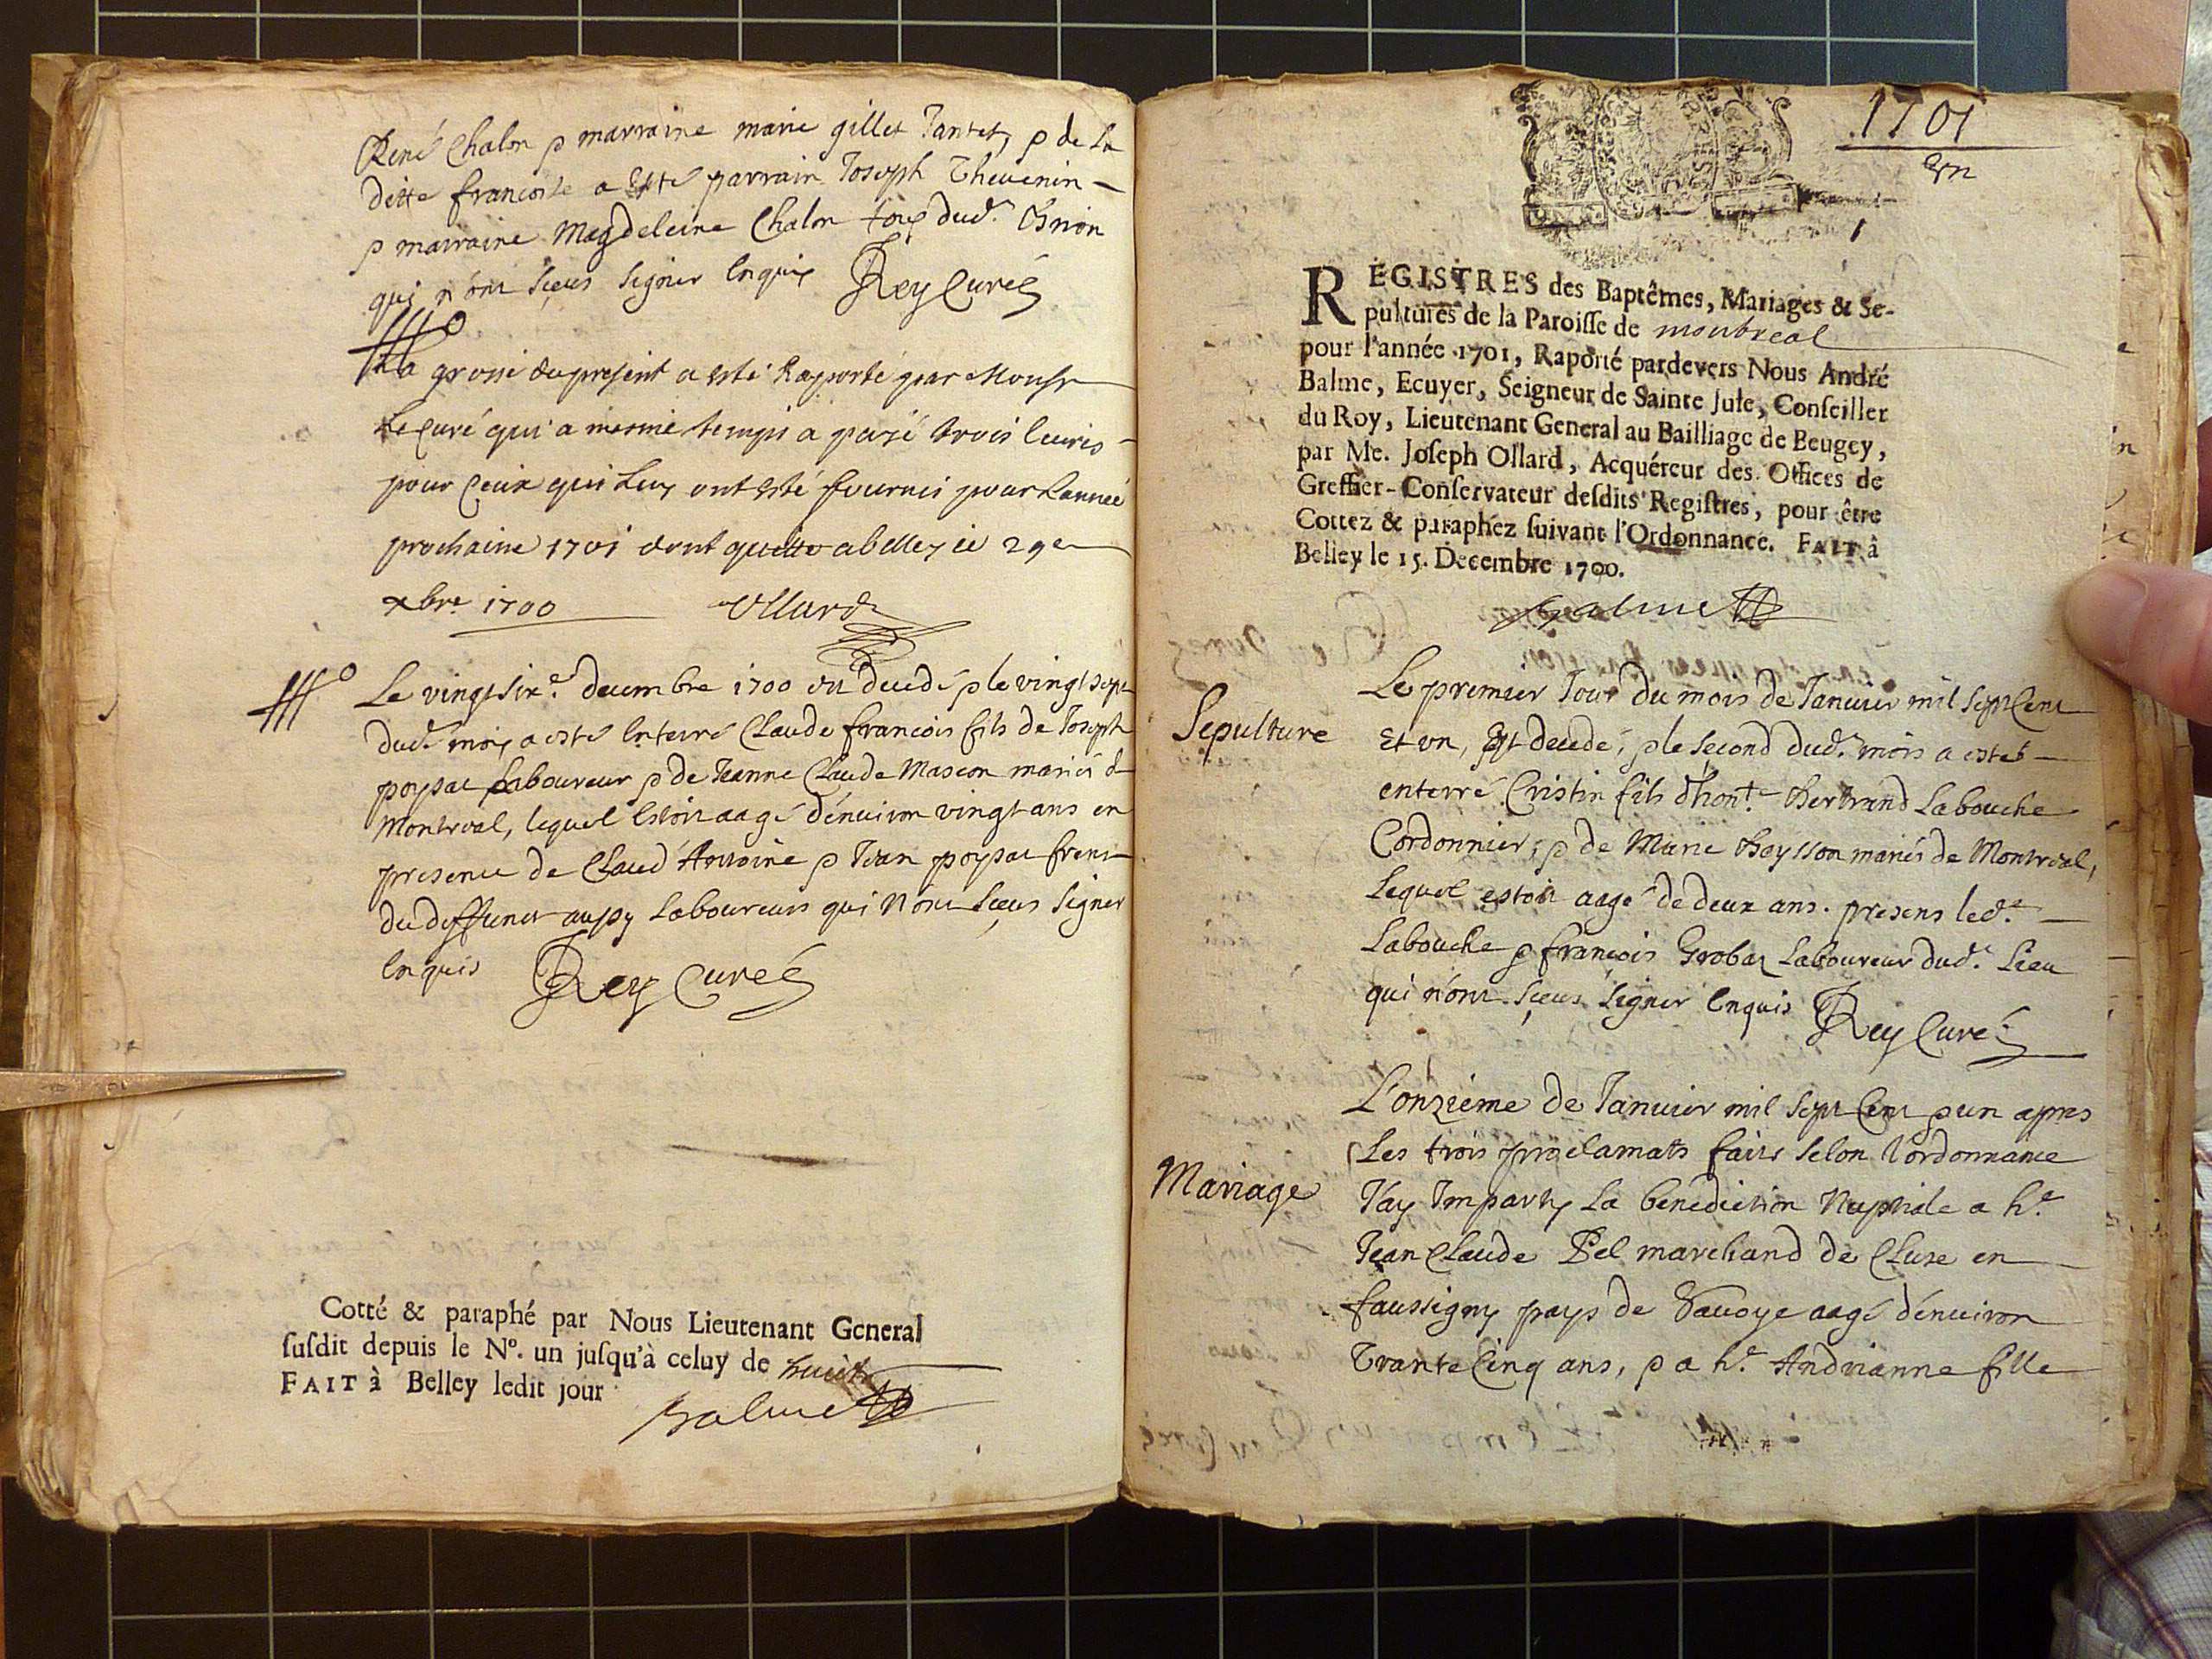 René Chalon & marraine marie gillet Tantet, & de la
ditte francoise a esté parrain Joseph Thevenin
& marraine Magdeleine Chalon tous dud.
qui n'ont sceus signer enquis Rey Curé
La grosse du present a esté Raporté par Monsr
Le Curé qui a mesme temps a payé trois livres
pour Ceux qui Luy ont esté fournis pour Lannée
prochaine 1701 dont quitte a belley ce 29e
xbre 1700 Ollard
Le vingt six.e decembre 1700 est decedé & le vingt sept
dud. mois a esté enterré Claude francois fils de Joseph
poysat Laboureur & de Jeanne Claude Mascon mariés de
Montreal, lequel estoit aagé d'environ vingt ans en
presence de Claud' Antoine & Jean poysat freres
du deffunct aussy Laboureurs qui n'ont sceus signer
enquis Rey Curé
Cotté & paraphé par Nous Lieutenant General
ſuſdit depuis le N°. un juſqu'à celuy de huict
FAIT à Belley ledit jour
Balme
1701
un
1
REGISTRES des Baptêmes, Mariages & Se-
pultures de la Paroiſſe de montreal
pour l'année 1701, Raporté pardevers Nous André
Balme, Ecuyer, Seigneur de Sainte Jule, Conſeiller
du Roy, Lieutenant General au Bailliage de Beugey,
par Me. Joſeph Ollard, Acquéreur des Offices de
Greffier-Conſervateur deſdits Regiſtres, pour être
Cottez & paraphez ſuivant l'Ordonnance. FAIT à
Belley le 15. Decembre 1700.
Balme
Sepulture
Le premier Jour du mois de Janvier mil sept Cent
et un, est decedé, & le second dud. mois a esté
enterré Cristin fils d'hon.t Bertrand Labouche
Cordonnier, & de Marie Boysson mariés de Montreal,
Lequel estoit aagé de deux ans. presens led.
Labouche & francois Grobaz Laboureur dud. Lieu
qui n'ont sceus signer enquis Rey Curé
Mariage
L'onziéme de Janvier mil sept Cent & un apres
Les trois proclamats faits selon l'ordonnance
J'ay Imparty La benediction Nuptiale a h.e
Jean Claude Pel marchand de Cluse en
faussigny pays de Savoye aagé d'environ
Trante Cinq ans, & a h.e Andrianne fille